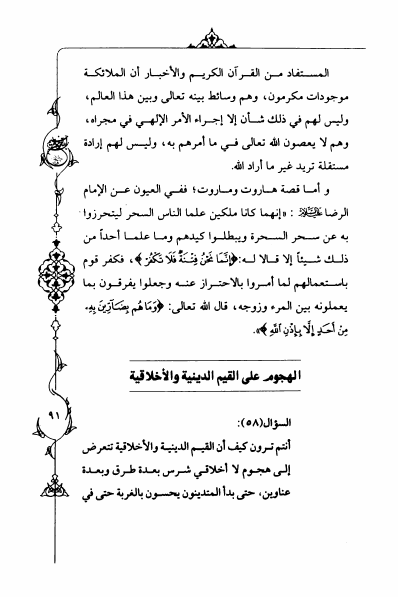 المستفاد من القرآن الكريم والأخبار أن الملائكة
موجودات مكرمون، وهم وسائط بينه تعالى وبين هذا العالم،
وليس لهم في ذلك شأن إلا إجراء الأمر الإلهي في مجراه،
وهم لا يعصون الله تعالى في ما أمرهم به، وليس لهم إرادة
مستقلة تريد غير ما أراد الله.
و أما قصة هاروت وماروت؛ ففي العيون عن الإمام
الرضا عليه السلام: «إنهما كانا ملكين علما الناس السحر ليتحرزوا
به عن سحر السحرة ويبطلوا كيدهم وما علما أحداً من
ذلك شيئاً إلا قالا له: ﴿إِنَّمَا نَحْنُ فِتْنَةٌ فَلَا تَكْفُرْ﴾، فكفر قوم
باستعمالهم لما أمروا بالاحتراز عنه وجعلوا يفرقون بما
يعملونه بين المرء وزوجه، قال الله تعالى: ﴿وَمَا هُم بِضَارِّينَ بِهِ
مِنْ أَحَدٍ إِلَّا بِإِذْنِ اللَّهِ﴾».
الهجوم على القيم الدينية والأخلاقية
السؤال(٥٨):
أنتم ترون كيف أن القيم الدينية والأخلاقية تتعرض
إلى هجوم لا أخلاقي شرس بعدة طرق وبعدة
عناوين، حتى بدأ المتدينون يحسون بالغربة حتى في
٩١